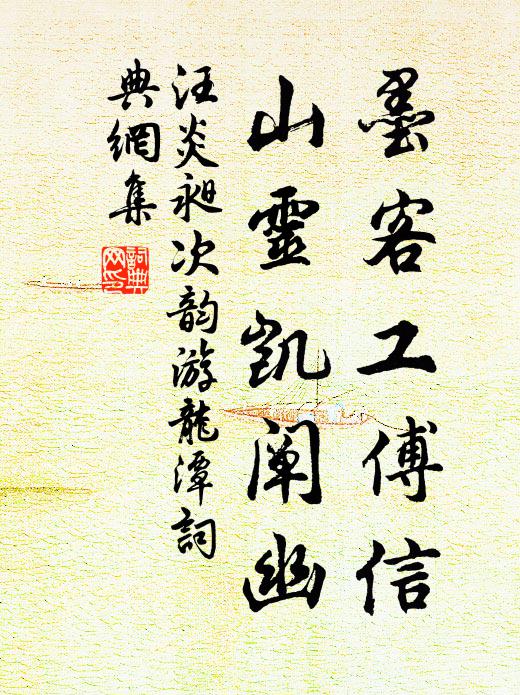 墨客工傅信
山靈凱闡幽
汪炎昶次韵游龍潭詞
典網集
詞典网印